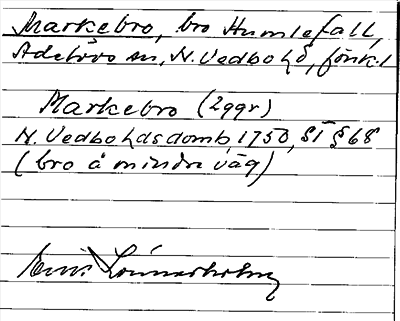 Markebro, bro Humlefall,
Adelövs sn, N. Vedbo hd, Jönk. l
Markebro (2 ggr)
N. Vedbo hds domb, 1750, ST § 68
(bro å mindre väg)